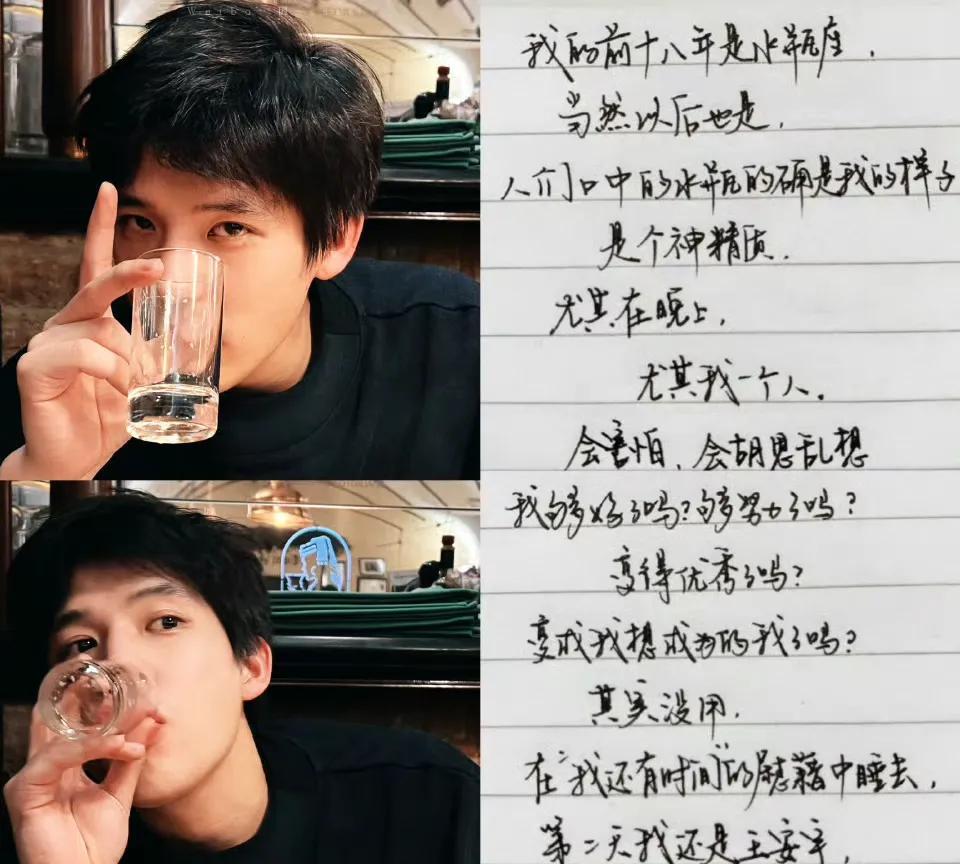 我的前十八年是水瓶座，
当然以后也是，
人们口中的水瓶的确是我的样子
是个神精质，
尤其在晚上，
尤其我一个人。
会害怕、会胡思乱想
我够好了吗？够努力了吗？
变得优秀了吗？
变成我想成为的我了吗？
其实没用，
在“我还有时间”的慰藉中睡去，
第二天我还是王安宇，